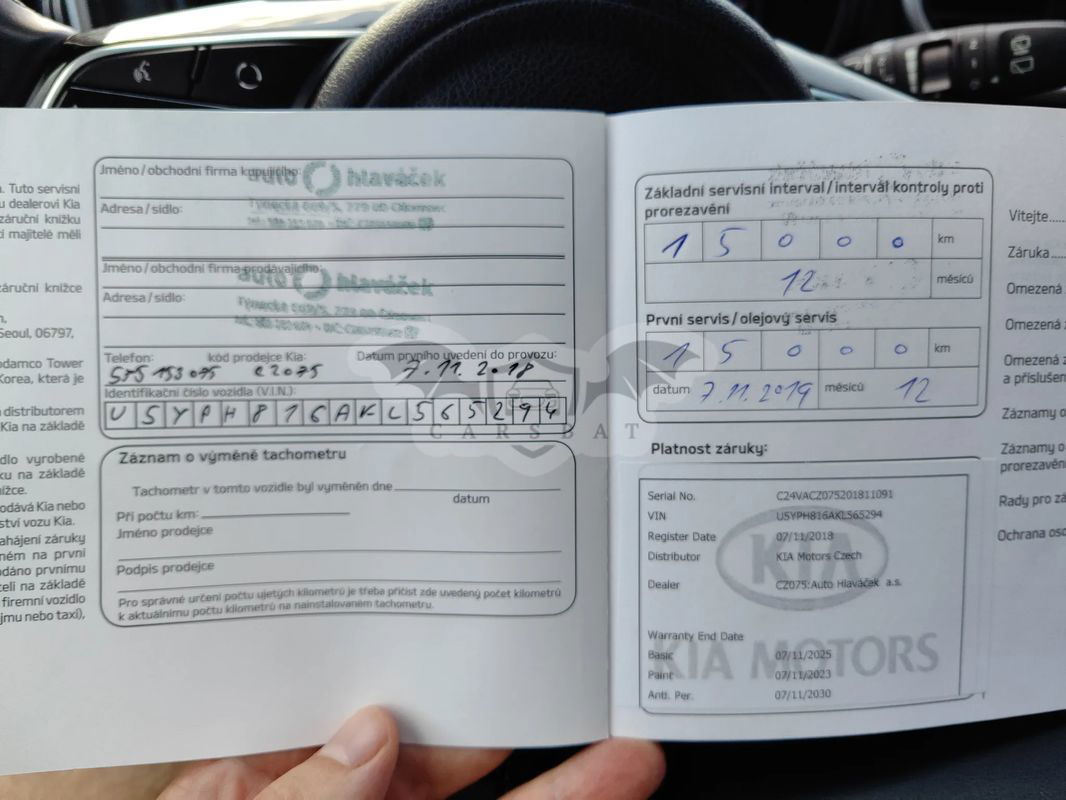 . Tuto servisní
u dealerovi Kia
záruční knížku
cí majitelé měli
záruční knížce
n,
Seoul, 06797,
odamco Tower
Korea, která je
distributorem
Kia na základě
dlo vyrobené
ku na základě
ížce.
odává Kia nebo
ství vozu Kia.
ahájení záruky
ném na první
odáno prvnímu
čeli na základě
firemní vozidlo
jmu nebo taxi),
Jméno / obchodní firma kupujícího:
auto hlaváček
Adresa / sídlo:
Týnecká 669/5, 779 00 Olomouc
Jméno / obchodní firma prodávajícího:
auto hlaváček
Adresa / sídlo:
Týnecká 669/5, 779 00 Olomouc
Telefon: kód prodejce Kia: Datum prvního uvedení do provozu:
585 153 075 C2075 7.11.2018
Identifikační číslo vozidla (V.I.N.):
U5YPH816AKL565294
CARSBAT
Záznam o výměně tachometru
Tachometr v tomto vozidle byl vyměněn dne
datum
Při počtu km:
Jméno prodejce
Podpis prodejce
Pro správné určení počtu ujetých kilometrů je třeba přičíst zde uvedený počet kilometrů
k aktuálnímu počtu kilometrů na nainstalovaném tachometru.
Základní servisní interval / intervál kontroly proti
prorezavění
1 5 0 0 0 km
12 měsíců
První servis / olejový servis
1 5 0 0 0 km
datum 7.11.2019 měsíců 12
Platnost záruky:
Serial No. C24VACZ075201811091
VIN U5YPH816AKL565294
Register Date 07/11/2018
Distributor KIA Motors Czech
Dealer CZ075:Auto Hlaváček a.s.
KIA
Warranty End Date
KIA MOTORS
Basic 07/11/2025
Paint 07/11/2023
Anti. Per. 07/11/2030
Vítejte.....
Záruka....
Omezená
Omezená z
Omezená z
a příslušen
Záznamy o
Záznamy o
prorezavění
Rady pro zá
Ochrana oso